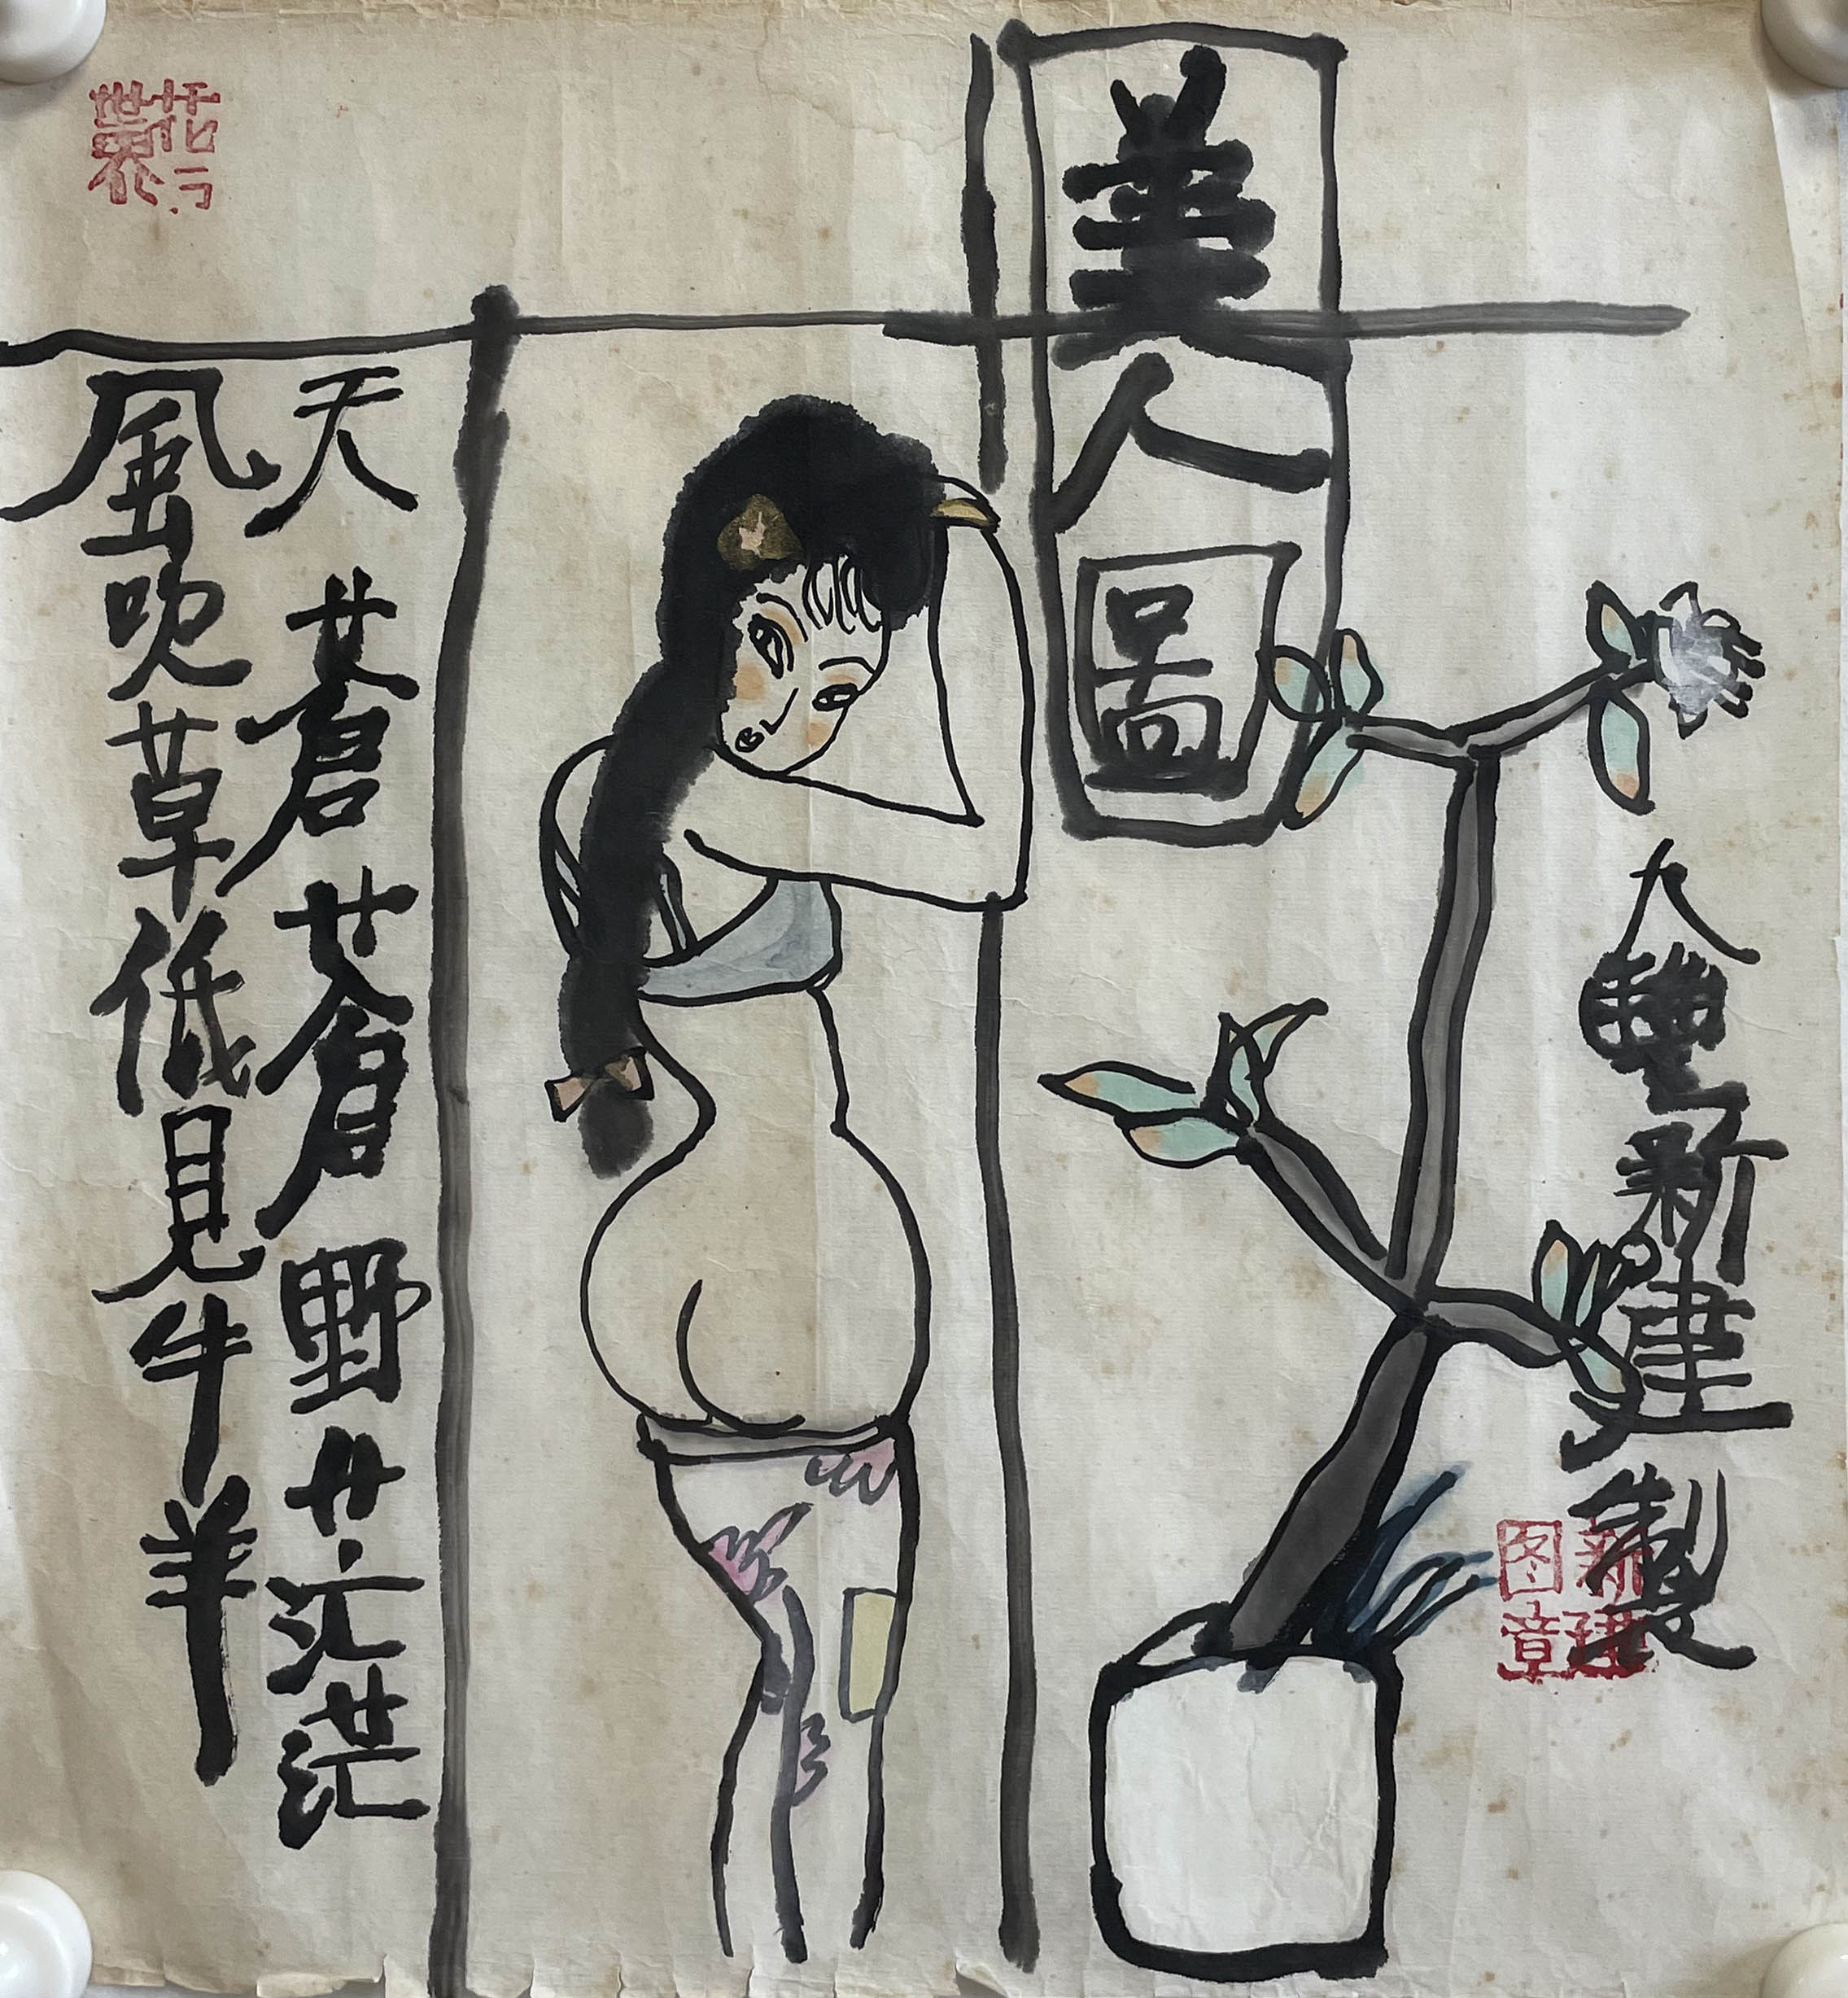 美人圖
新建製
新建图章
天蒼蒼野茫茫
風吹草低見牛羊
花行世界